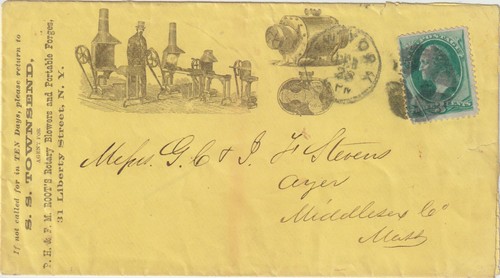 If not called for in TEN Days, please return to
S. S. TOWNSEND,
AGENT FOR
P. H. & F. M. ROOT'S Rotary Blowers and Portable Forges,
31 Liberty Street, N. Y.
YORK
Messrs. G. C & J. F Stevens
Ayer
Middlesex Co
Mass